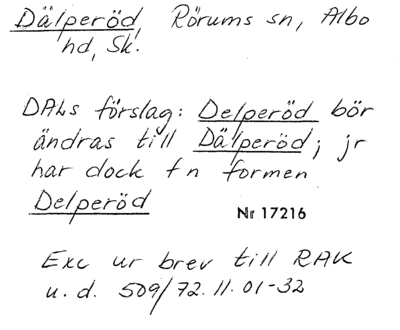 Dälperöd, Rörums sn, Albo
hd, Sk.
DALs förslag: Delperöd bör
ändras till Dälperöd; jr
har dock fn formen
Delperöd
Nr 17216
Exc ur brev till RAK
u.d. 509/72.11.01-32